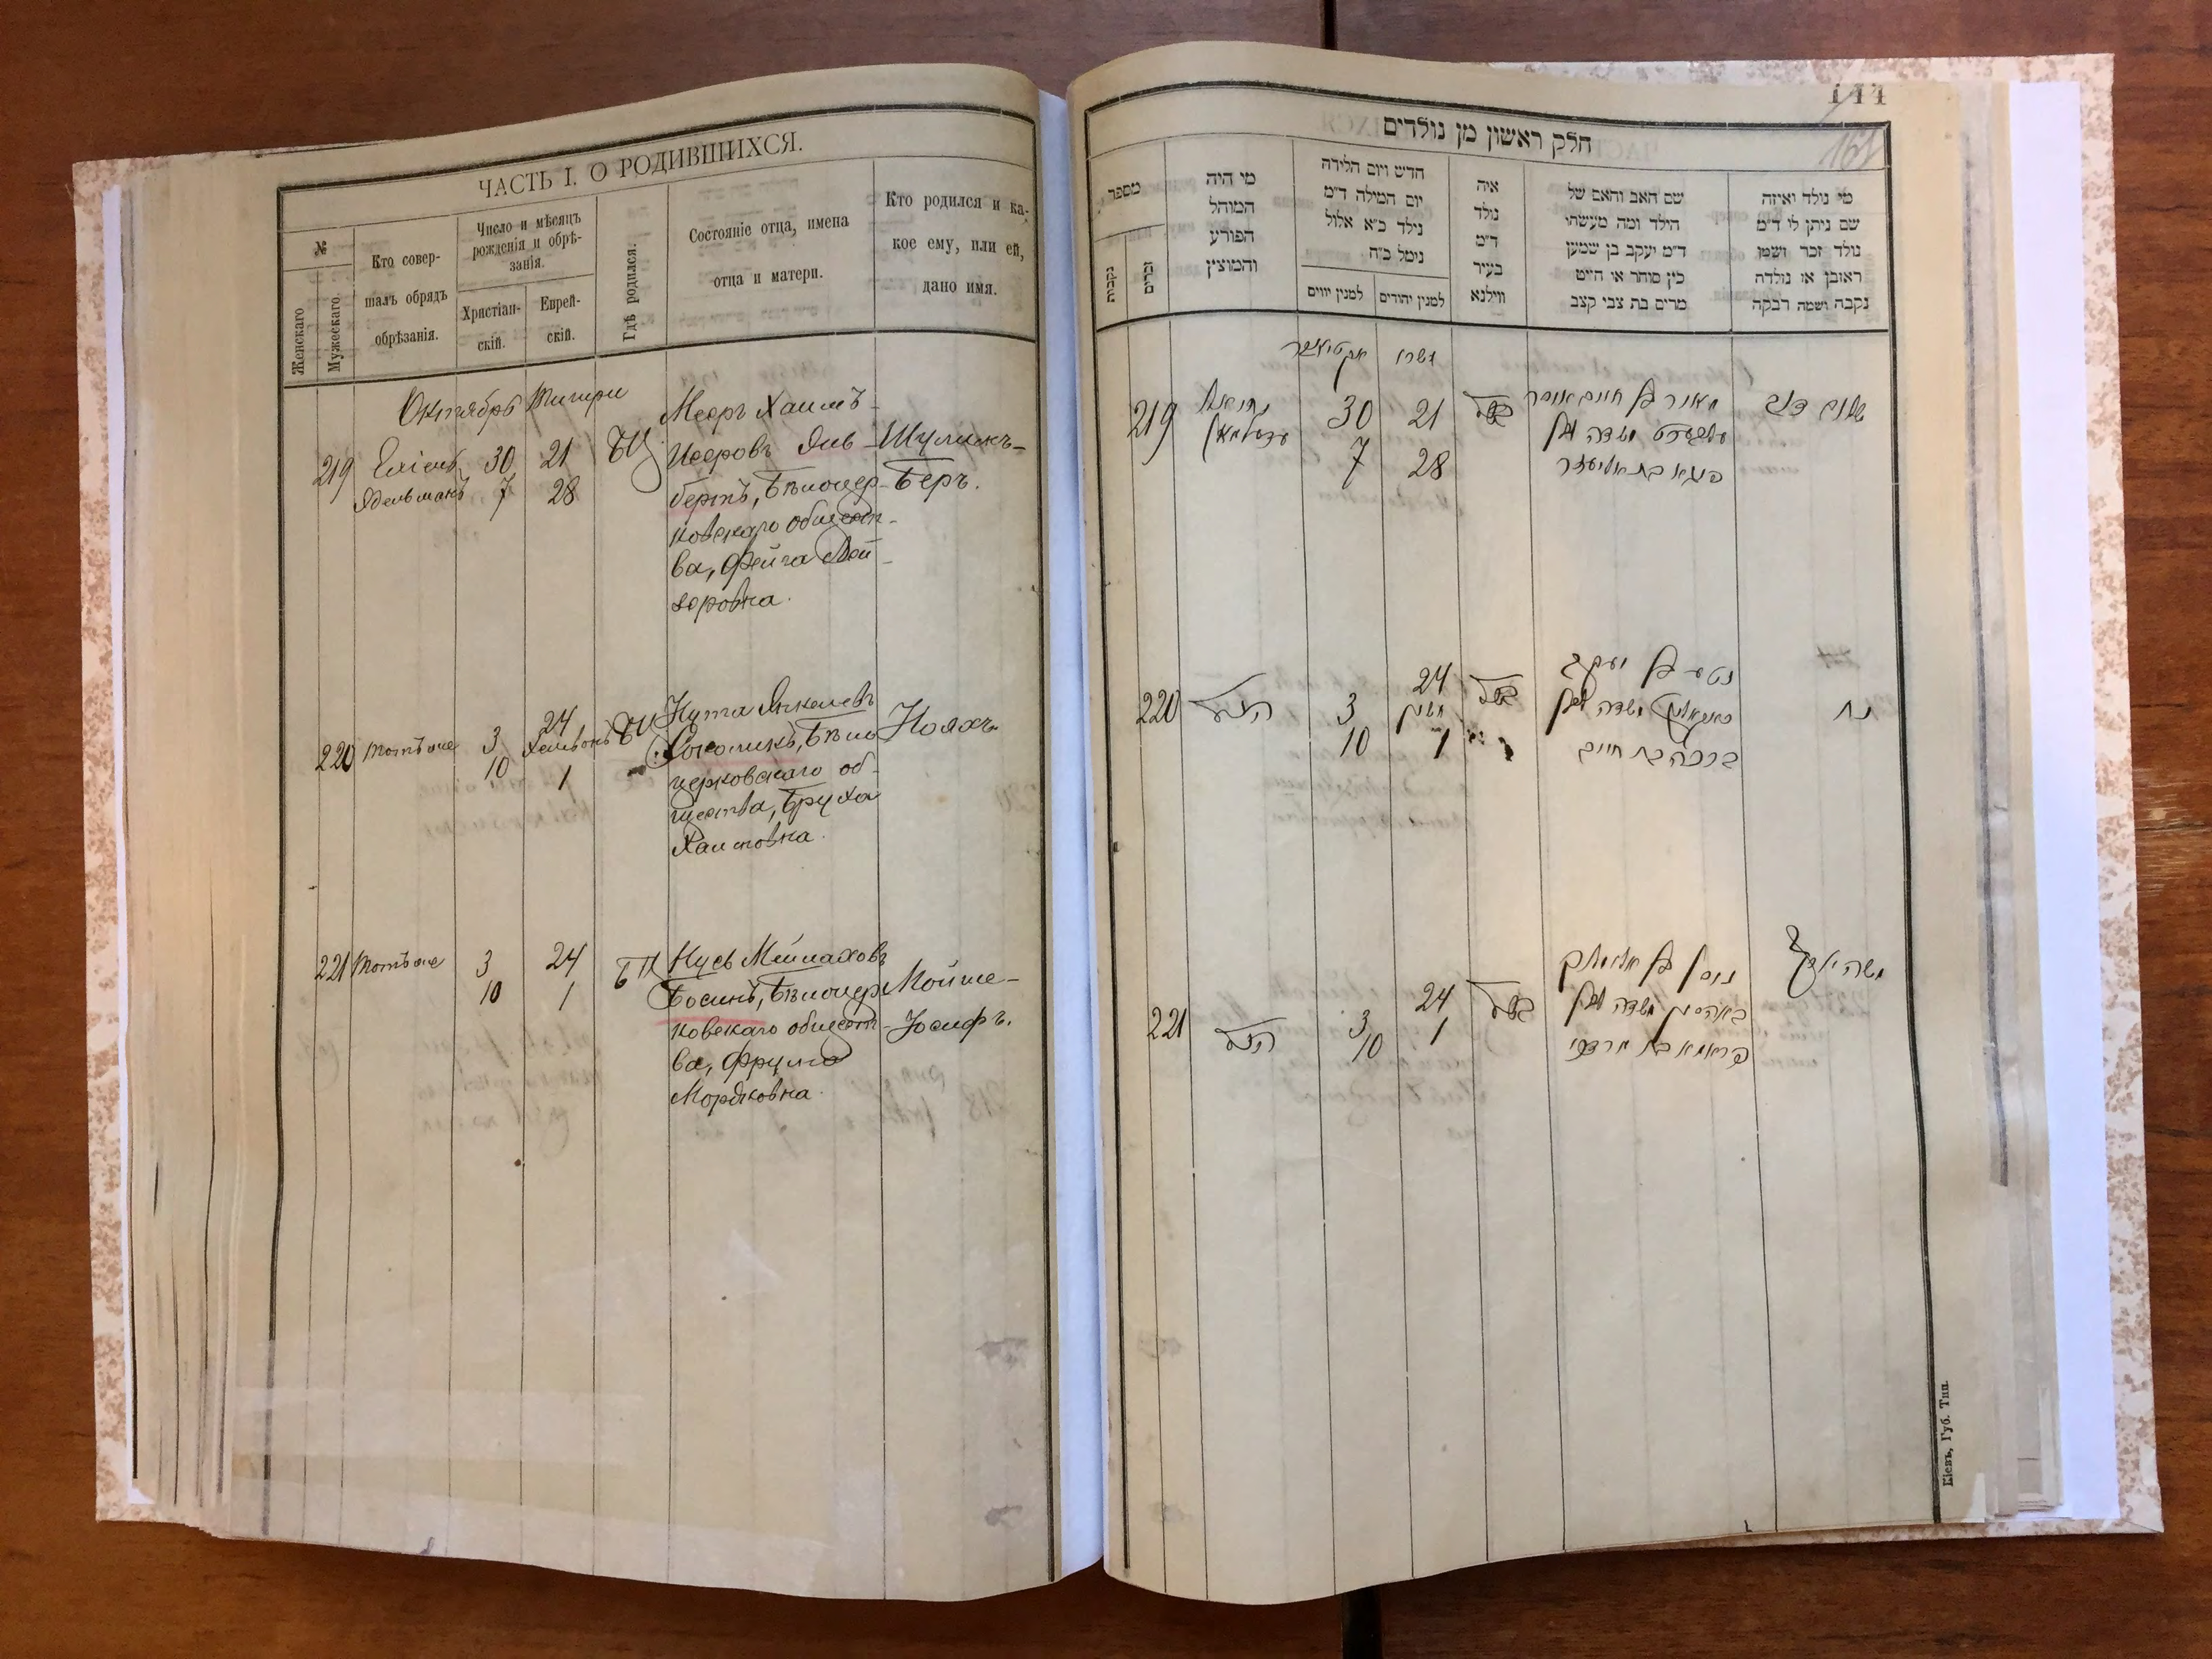 ЧАСТЬ I. О РОДИВШИХСЯ.
№
Женскаго
Мужескаго.
Кто совер-
шалъ обрядъ
обрѣзанія.
Число и мѣсяцъ
рожденія и обрѣ-
занія.
Христіан-
скій.
Еврей-
скій.
Гдѣ родился.
Состояніе отца, имена
отца и матери.
Кто родился и ка-
кое ему, или ей,
дано имя.
Октябрь Тишри
219
Эдельманъ
30 21
7 28
БЦ
Мееръ Хаимъ-
Исеровъ Аль-
бертъ, Бѣлоцер-
ковскаго общест-
ва, Фейга Лей-
зеровна.
Шулимъ-
Беръ.
220 Тотъ же
3
10
24
Хешвонъ
1
БЦ
Нута Янкелевъ
Соколикъ, Бѣло
церковскаго об-
щества, Бруха
Хаимовна.
Нояхъ
221 Тотъ же
3 24
10 1
БЦ
Нусь Мейлаховъ
Босинъ, Бѣлоцер
ковскаго общест-
ва, Фрума
Мордковна.
Мойше-
Іосифъ.
144
161
חלק ראשון מן נולדים
מספר
נקבות
זכרים
מי היה
המוהל
הפורע
והמוצץ
חדש ויום הלידה
יום המילה ד״מ
נילד כ״א אלול
נימל כ״ח
למנין יווים
למנין יהודים
איה
נולד
ד״מ
בעיר
ווילנא
שם האב והאם של
הילד ומה מעשתי
ד״מ יעקב בן שמעון
כין סוחר או חייט
מרים בת צבי קצב
מי נולד ואיזה
שם ניתן לו ד״מ
נולד זכר ושמו
ראובן או נולדה
נקבה ושמה רבקה
אקטיאבר תשרי
219
עדעלמאן
30 21
7 28
מאיר בן חיים איסר
פיגא בת אליעזר
שלום בער
220
3
10
24
חשון
1
נטע בן יעקב
ברכה בת חיים
נח
221
3
10
24
1
ניסן בן אלימלך
פרומא בת מרדכי
משה יוסף
Кіевъ, Губ. Тип.